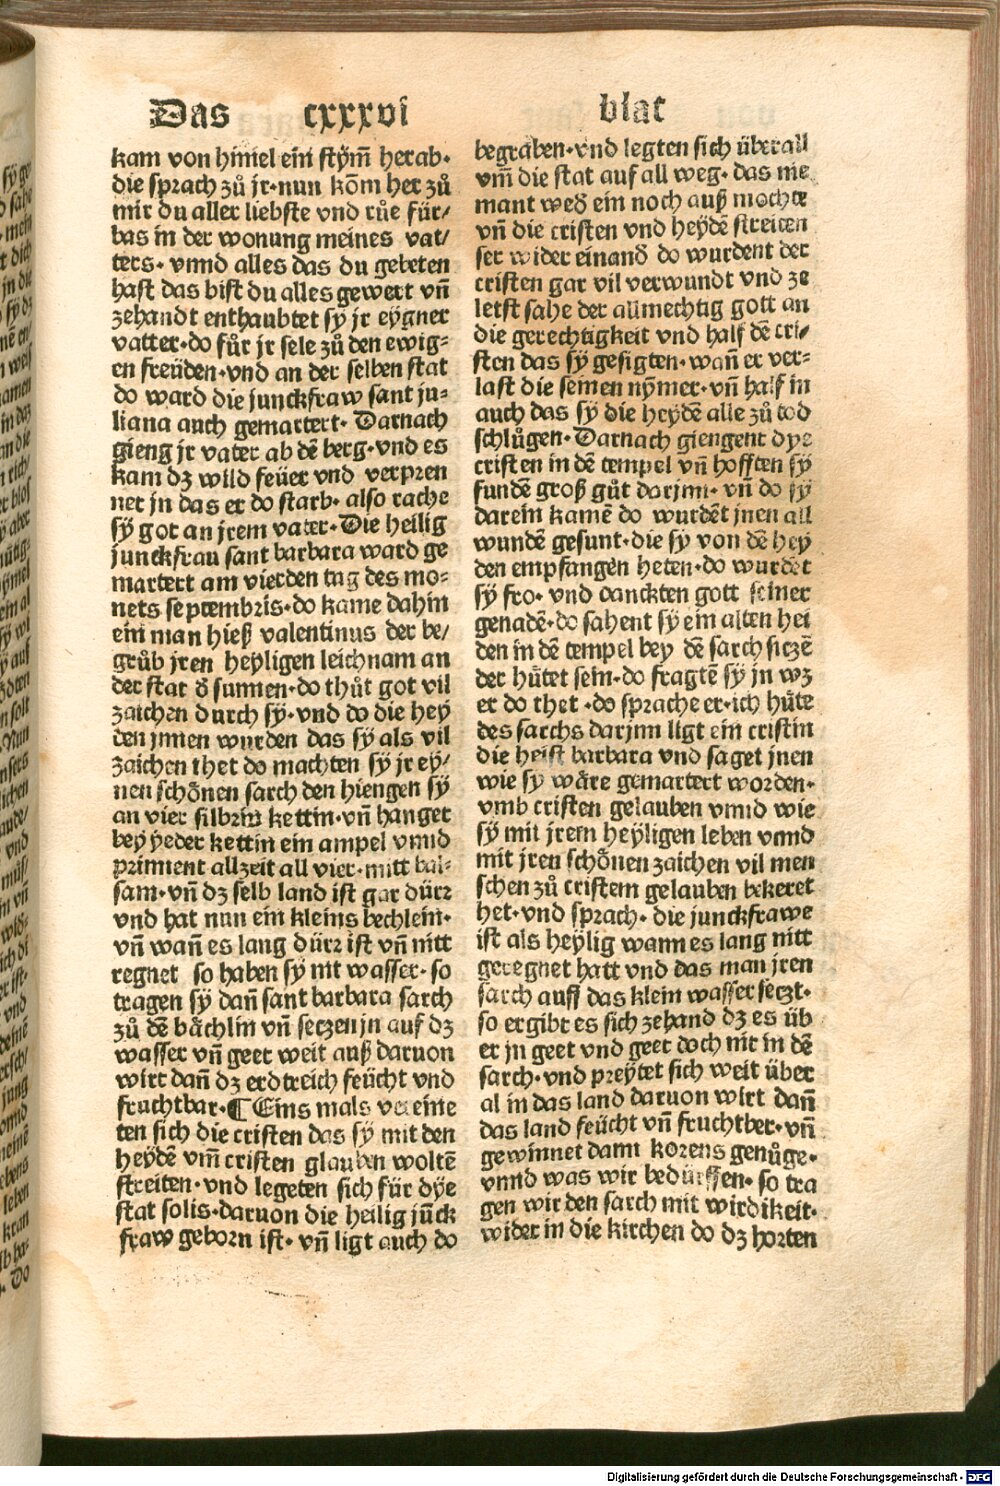 Das cxxxvi blat
kam von himel ein stÿm̃ herab·
die sprach zů jr·nun kõm her zů
mir du aller liebste vnd růe für/
bas in der wonung meines vat/
ters· vnnd alles das du gebeten
hast das bist du alles gewert vñ
zehandt enthaubtet sÿ jr eÿgner
vatter·do fůr jr sele zů den ewig⸗
en freüden·vnd an der selben stat
do ward die junckfraw sant ju⸗
liana auch gemartert· Darnach
gieng jr vater ab dẽ berg·vnd es
kam dz wild feüer vnd verpren
net jn das er do starb· also rache
sÿ got an jrem vater·Die heilig
junckfrau sant barbara ward ge
martert am vierden tag des mo⸗
nets septembris·do kame dahin
ein man hieß valentinus der be/
grůb jren heyligen leichnam an
der stat ď sunnen·do thůt got vil
zaichen durch sÿ·vnd do die hey
den jnnen wurden das sÿ als vil
zaichen thet do machten sÿ jr eÿ/
nen schönen sarch den hiengen sÿ
an vier silbrin kettin·vñ hanget
bey yeder kettin ein ampel vnnd
prinnent allzeit all vier·mitt bal⸗
sam·vñ dz selb land ist gar dürr
vnd hat nun ein kleins bechlein·
vñ wañ es lang dürr ist vñ nitt
regnet so haben sÿ nit wasser·so
tragen sÿ dañ sant barbara sarch
zů dẽ bächlin vñ seczen jn auf dz
wasser vñ geet weit auß daruon
wirt dañ dz erdtreich feücht vnd
fruchtbar·¶Eins mals vereine
ten sich die cristen das sÿ mit den
heydẽ vm̃ cristen glauben woltẽ
streiten·vnd legeten sich für dÿe
stat solis·daruon die heilig jũck
fraw geborn ist· vñ ligt auch do
begraben·vnd legten sich überall
vm̃ die stat auf all weg·das nie
mant weď ein noch auß mochte
vñ die cristen vnd heydẽ streiten
ser wider einanď do wurdent der
cristen gar vil verwundt vnd ze
letst sahe der allmechtig gott an
die gerechtigkeit vnd half dẽ cri/
sten das sÿ gesigten·wañ er ver⸗
last die seinen nÿmer·vñ half in
auch das sÿ die heydẽ alle zů tod
schlůgen·Darnach giengent dye
cristen in dẽ tempel vñ hofften sÿ
fundẽ groß gůt darjnn· vñ do sÿ
darein kamẽ do wurdẽt jnen all
wundẽ gesunt·die sy von dẽ hey
den empfangen heten·do wurdet
sÿ fro· vnd danckten gott seiner
genadẽ·do sahent sÿ ein alten hei
den in dẽ tempel bey dẽ sarch siczẽ
der hůtet sein·do fragtẽ sÿ jn wz
er do thet ·do sprache er·ich hůte
des sarchs darjnn ligt ein cristin
die heist barbara vnd saget jnen
wie sy wäre gemartert worden·
vmb cristen gelauben vnnd wie
sÿ mit jrem heyligen leben vnnd
mit jren schönen zaichen vil men
schen zů cristem gelauben bekeret
het·vnd sprach· die junckfrawe
ist als heylig wann es lang nitt
geregnet hatt vnd das man jren
sarch auff das klein wasser seczt·
so ergibt es sich zehand dz es üb
er jn geet vnd geet doch nit in dẽ
sarch·vnd preÿtet sich weit über
al in das land daruon wirt dañ
das land feücht vñ fruchtber·vñ
gewinnet dann korens genůge·
vnnd was wir bedürffen·so tra
gen wir den sarch mit wirdikeit·
wider in die kirchen do dz horten
Digitalisierung gefördert durch die Deutsche Forschungsgemeinschaft - DFG